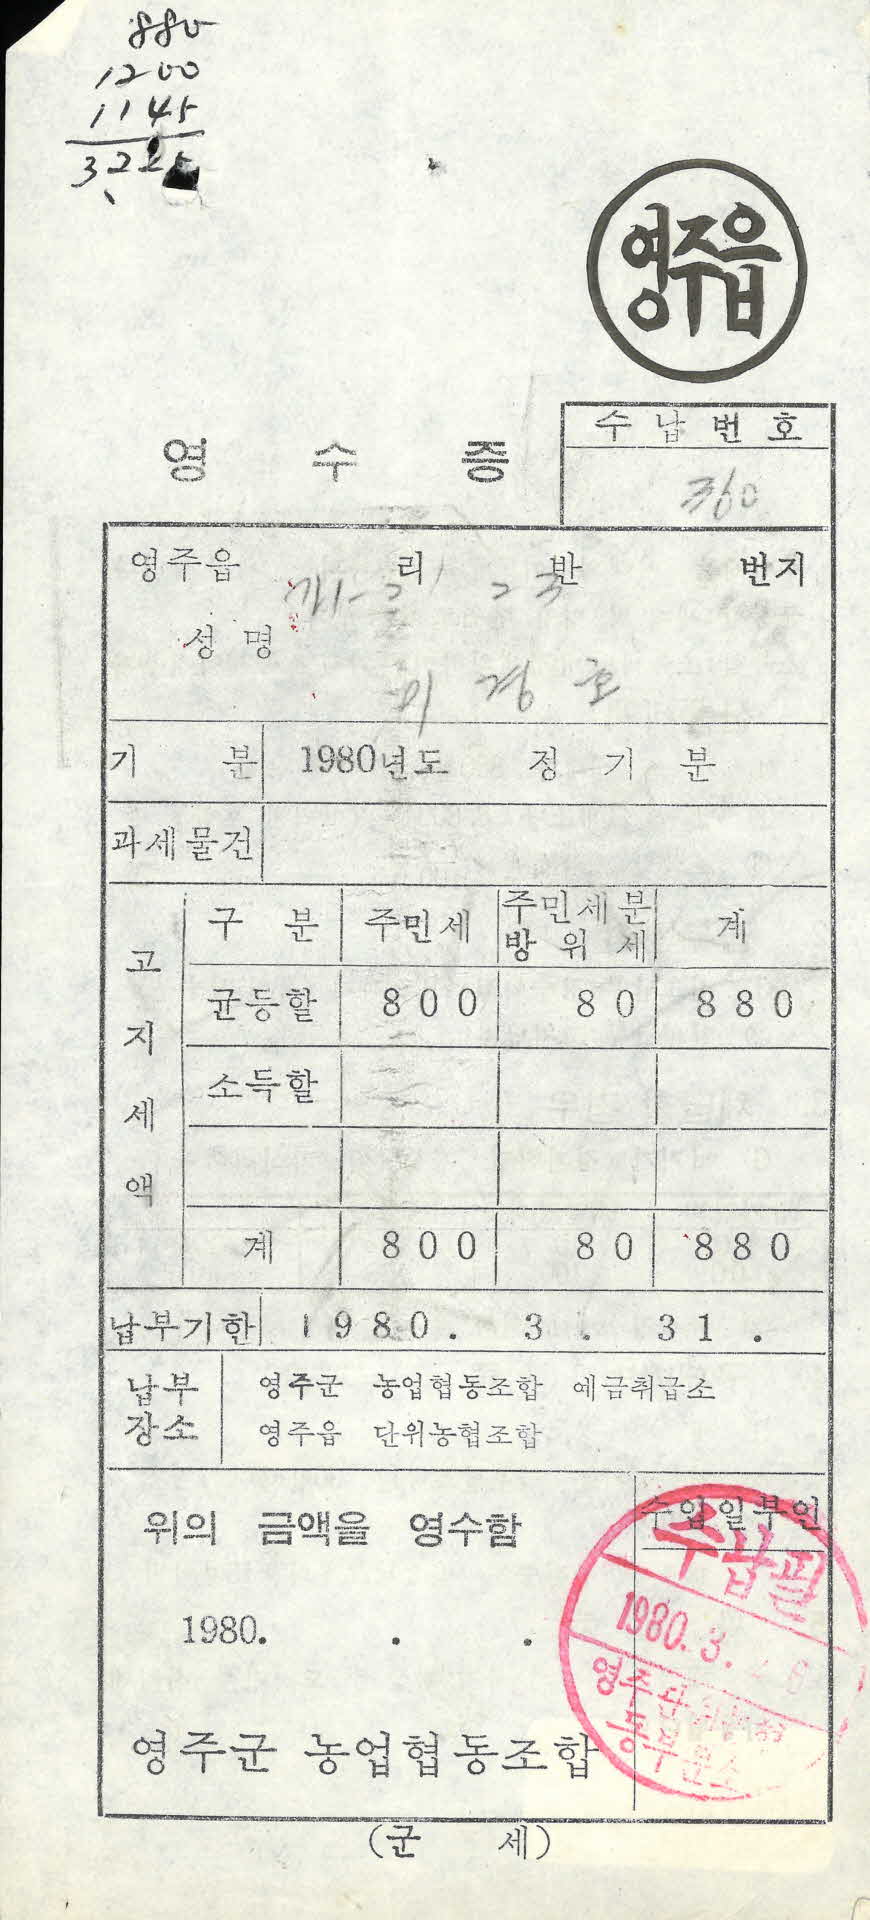 880
1200
1145
3225
영주읍
수납번호
영 수 증
360
영주읍 리 반 번지
성명
기 분 1980년도 정 기 분
과세물건
고지세액
구 분 주민세 주민세분 방위세 계
균등할 800 80 880
소득할
계 800 80 880
납부기한 1980. 3. 31.
납부장소 영주군 농업협동조합 예금취급소
영주읍 단위농협조합
위의 금액을 영수함
수입일부인
수납필
1980. 3.
1980. . .
영주
동부분소
영주군 농업협동조합
(군 세)